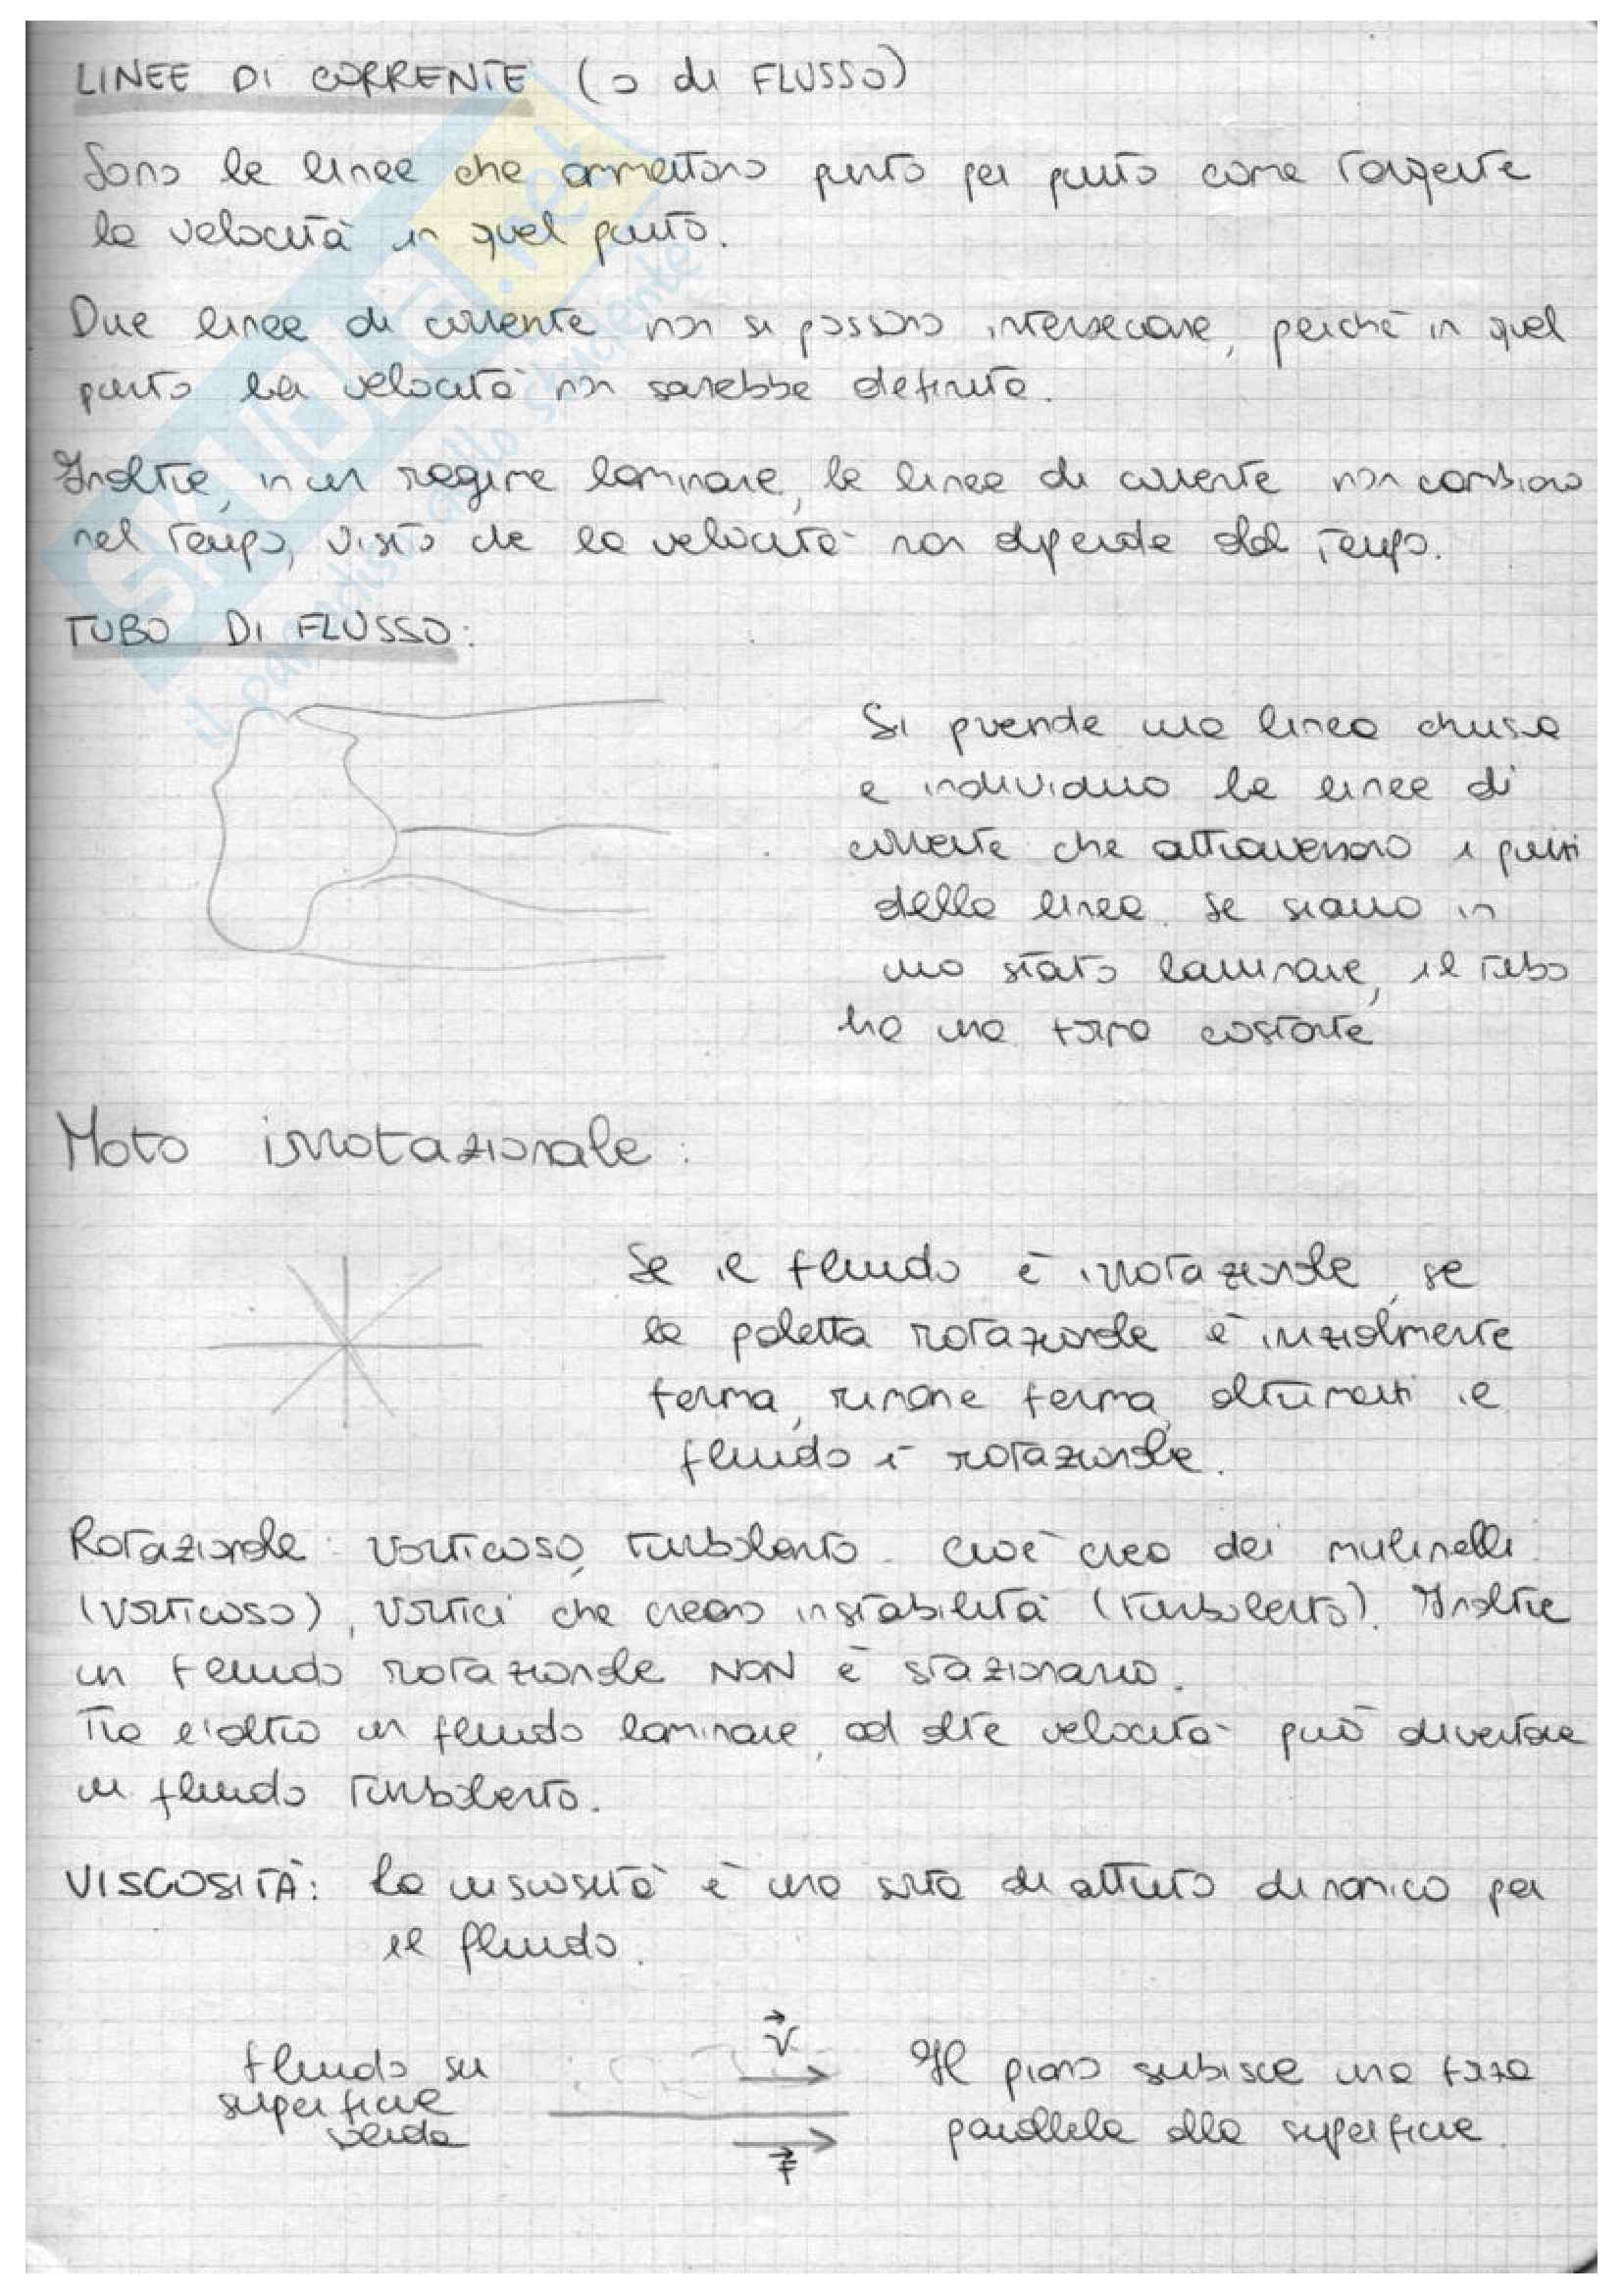 LINEE DI CORRENTE (o di FLUSSO)
Sono le linee che ammettono punto per punto come tangente
la velocità in quel punto.
Due linee di corrente non si possono intersecare, perché in quel
punto la velocità non sarebbe definita.
Inoltre, in un regime laminare, le linee di corrente non cambiano
nel tempo, visto che la velocità non dipende dal tempo.
TUBO DI FLUSSO:
Si prende una linea chiusa
e individuo le linee di
corrente che attraversano i punti
della linea. Se siamo in
uno stato laminare, il tubo
ha una forma costante
Moto irrotazionale:
Se il fluido è irrotazionale, se
la paletta rotazionale è inizialmente
ferma, rimane ferma, altrimenti il
fluido è rotazionale.
Rotazionale: vorticoso, turbolento. Cioè crea dei mulinelli
(vorticoso), vortici che creano instabilità (turbolento). Inoltre
un fluido rotazionale NON è stazionario.
Tra l'altro un fluido laminare, ad alte velocità può diventare
un fluido turbolento.
VISCOSITÀ: La viscosità è una sorta di attrito dinamico per
il fluido.
fluido su
superficie
solida
v
f
Il piano subisce una forza
parallela alla superficie.
SKUOLA.net
il paradiso dello studente